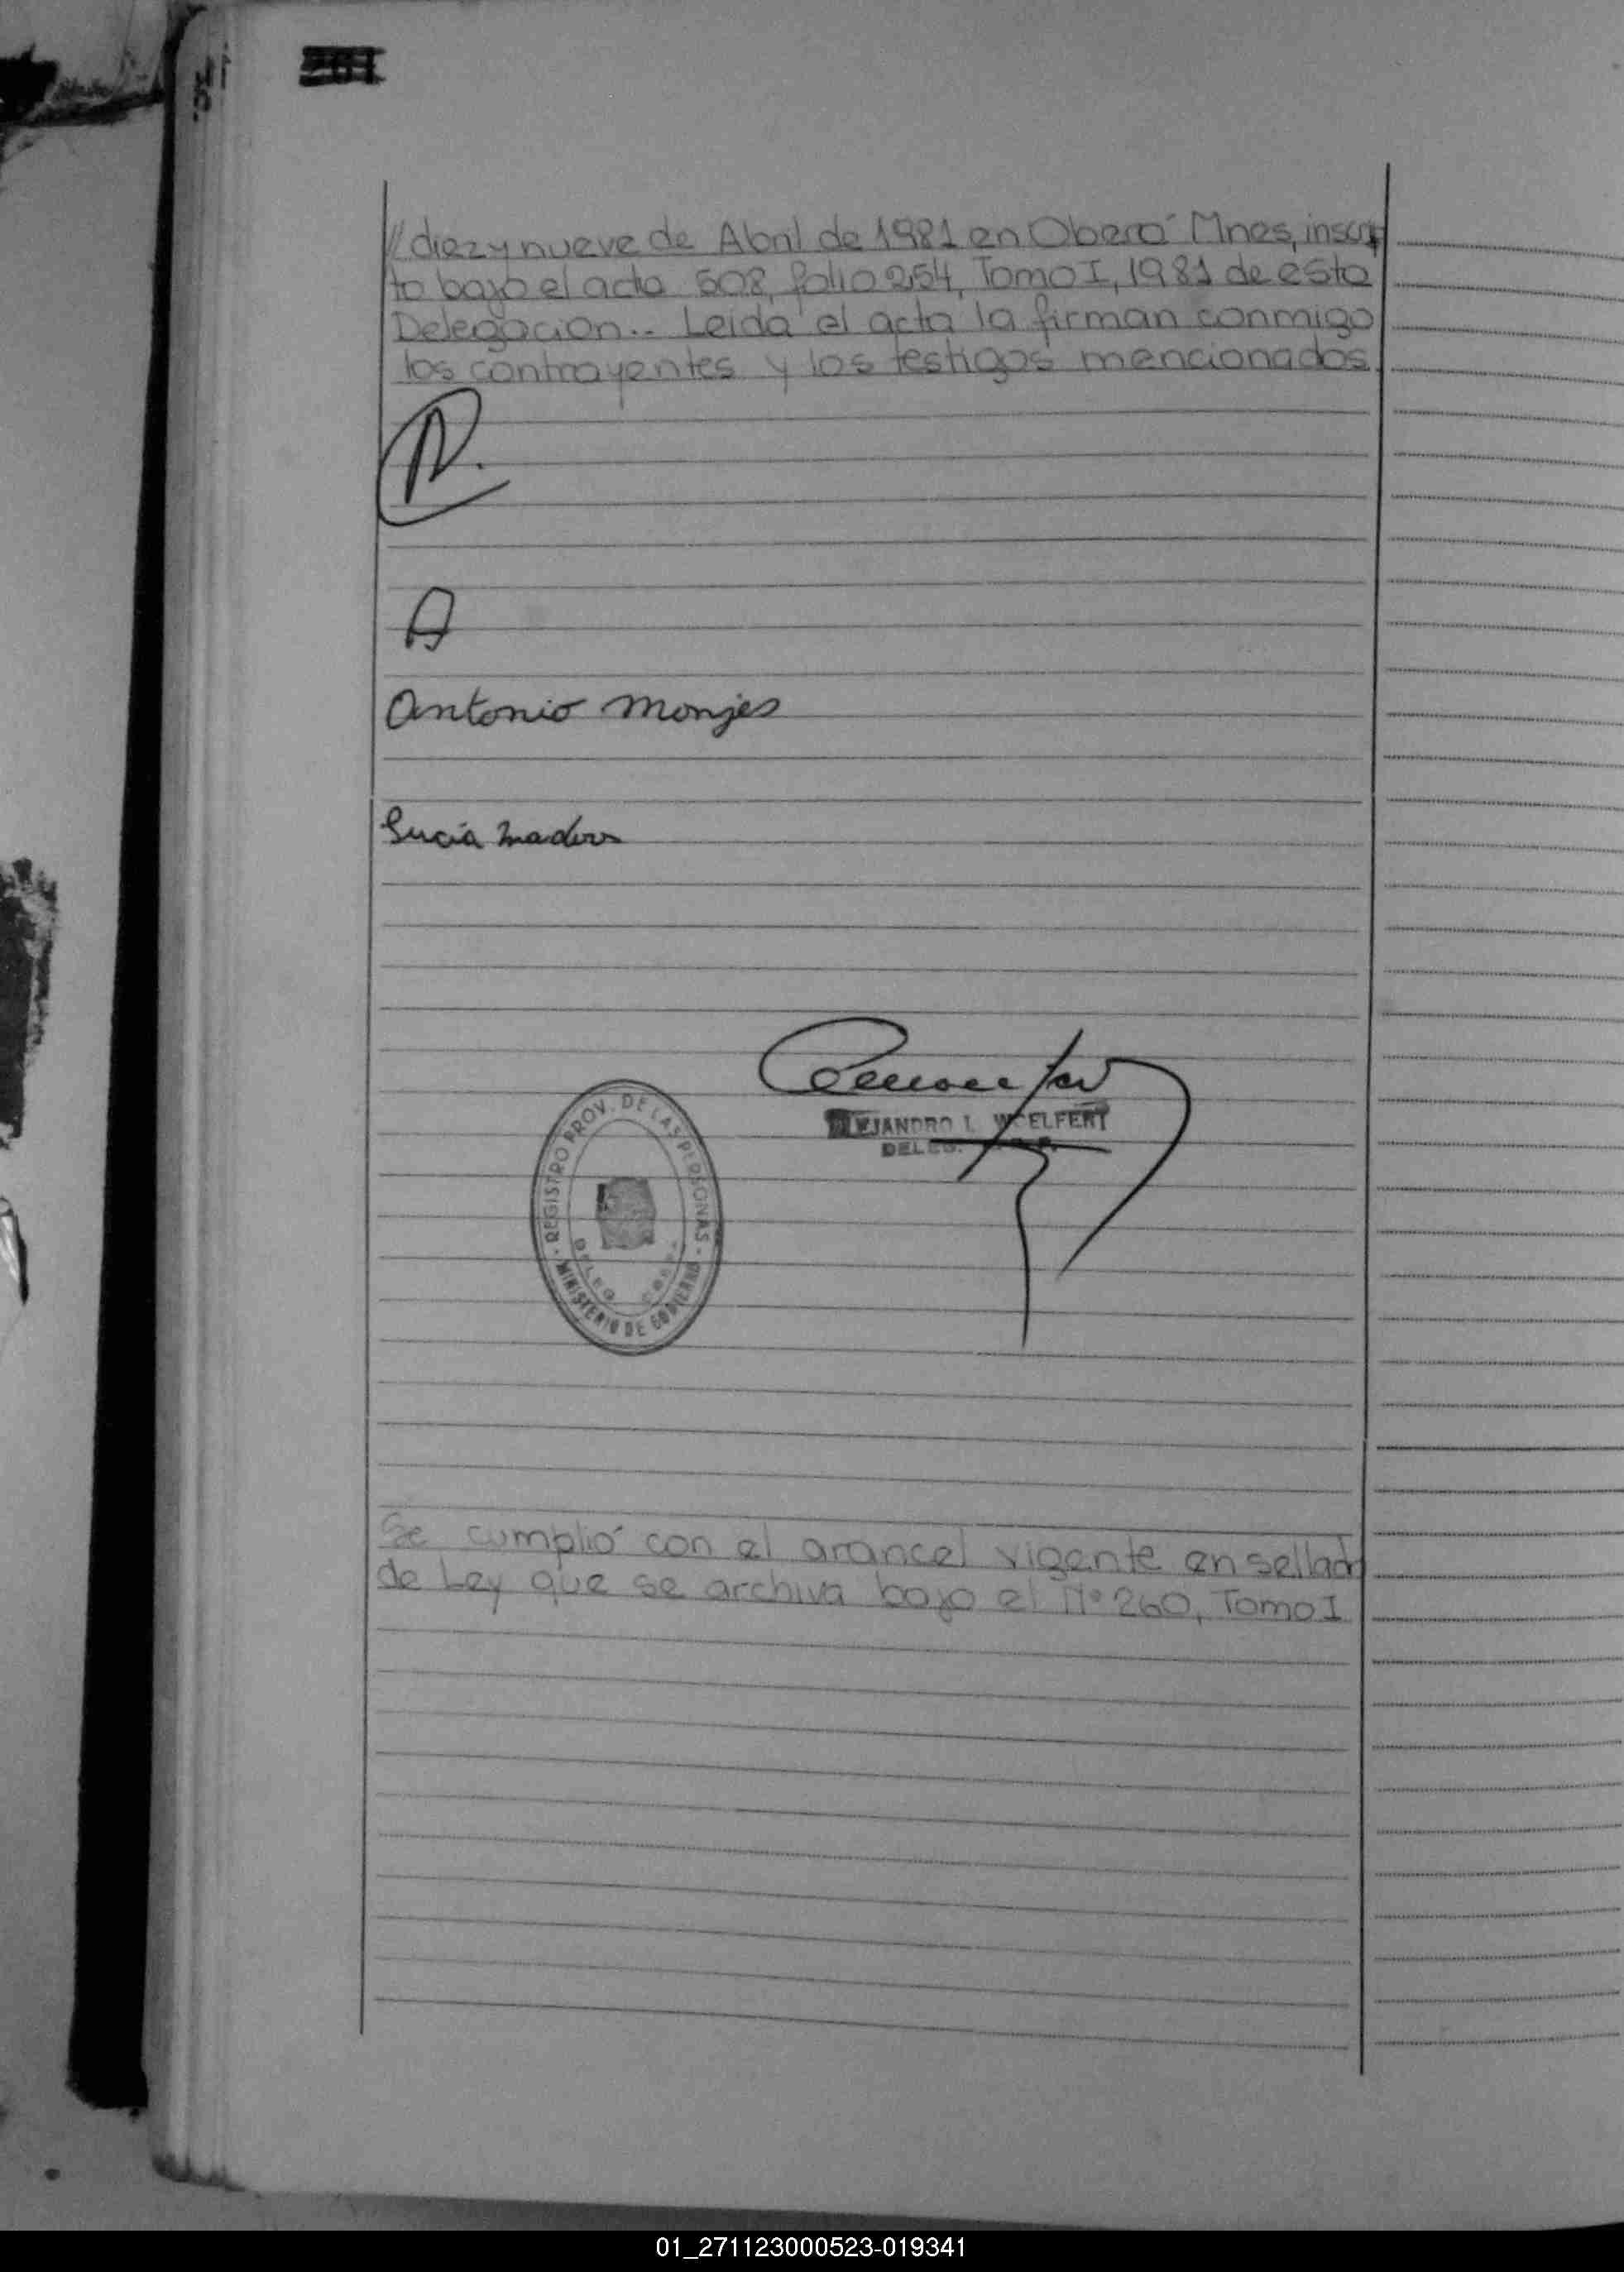 // diez y nueve de Abril de 1981 en Oberá Mnes, inscrip
to bajo el acta 508, folio 254, Tomo I, 1981 de esta
Delegación.. Leída el acta la firman conmigo
los contrayentes y los testigos mencionados.
A
Antonio Monjes
Lucía
EJANDRO I. WOELFERT
DELEG.
- REGISTRO PROV. DE LAS PERSONAS -
MINISTERIO DE GOBIERNO
DELEG
Se cumplió con el arancel vigente en sellado
de Ley que se archiva bajo el Nº 260, Tomo I
01_271123000523-019341